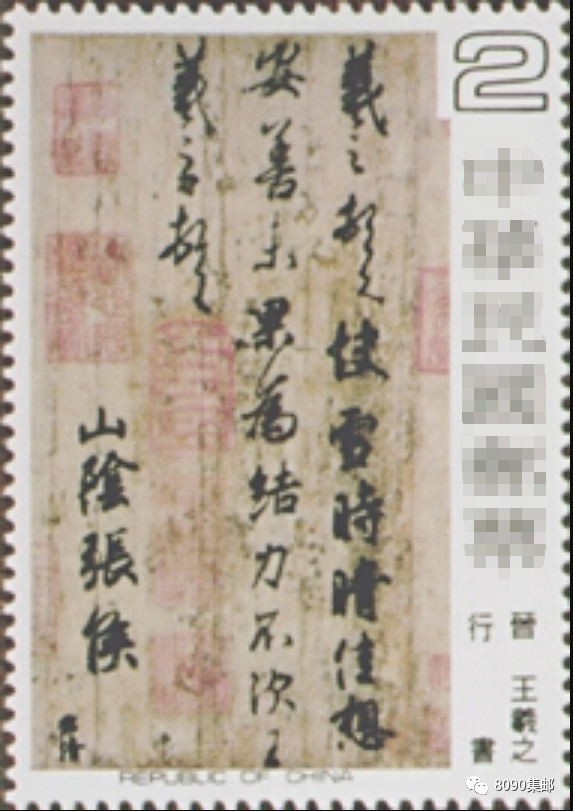 2
晉 王羲之
行書
羲之頓首快雪時晴佳想
安善未果為結力不次王
羲之頓首
山陰張侯
REPUBLIC OF CHINA
8090集邮